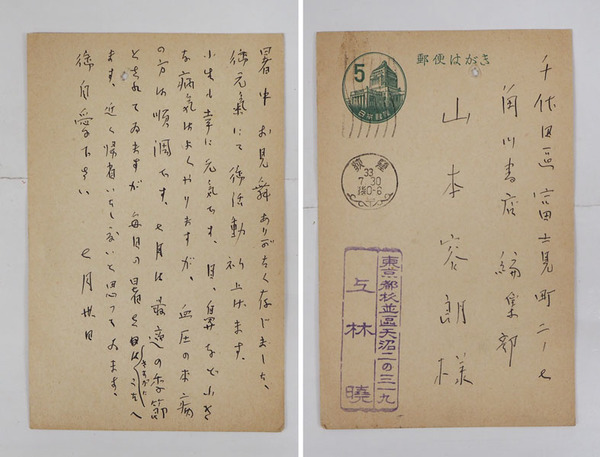 暑中お見舞ありがたく存じました、
御元氣にて御活動祈上げます。
小生も幸に元気です。目、鼻など小さ
な病気はよくやりますが、血圧の本病
の方は順調です。七月は最適の季節
とされてゐますが毎日の暑さ
ます。近く帰省いたし度いと思つてゐます。
御自愛下さい 七月卅日
郵便はがき
5
千代田區富士見町二ノ七
角川書店 編集部
山本容朗様
33
7.30
后0-6
東京都杉並區天沼二の三一九
上林曉